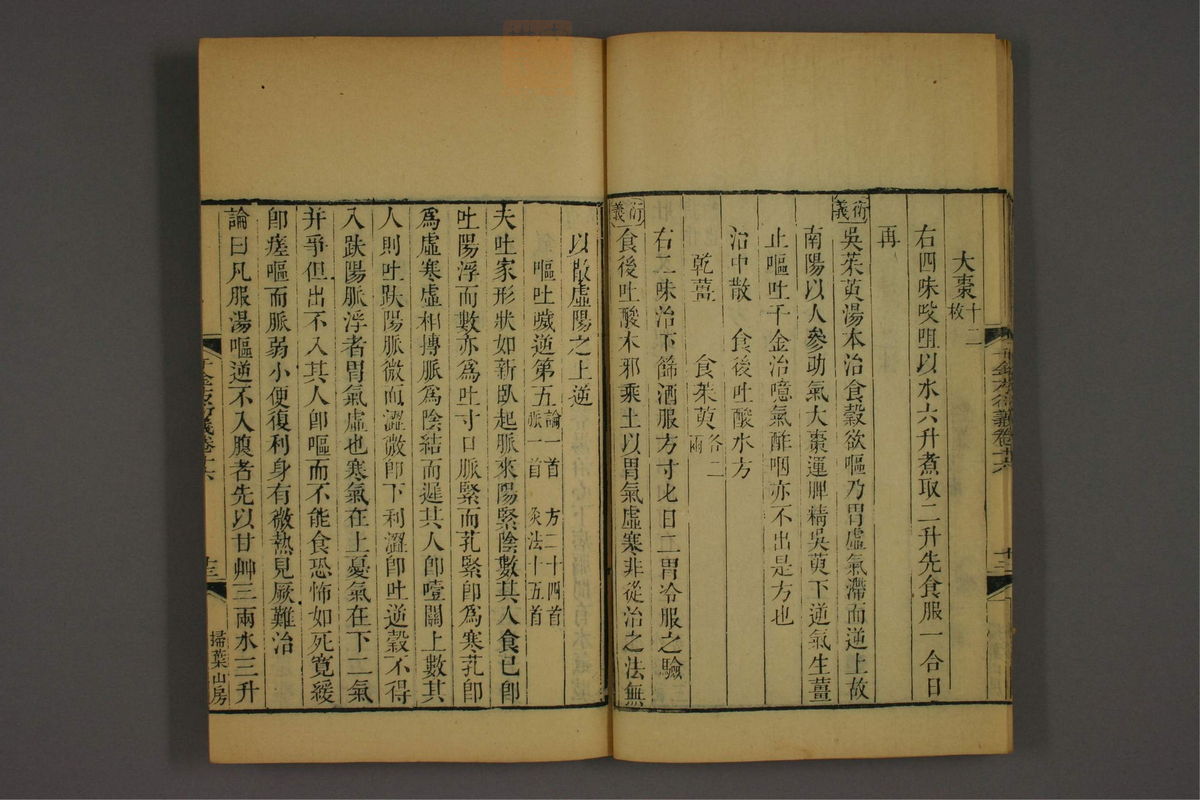 大棗十二枚
右四味㕮咀以水六升煮取二升先食服一合日
再
衍義
吳茱萸湯本治食穀欲嘔乃胃虛氣滯而逆上故
南陽以人參助氣大棗運脾精吳萸下逆氣生薑
止嘔吐千金治噫氣酢咽亦不出是方也
治中散　食後吐酸水方
乾薑　食茱萸各二兩
右二味治下篩酒服方寸匕日二胃冷服之驗
衍義
食後吐酸木邪乘土以胃氣虛寒非從治之法無
以散虛陽之上逆
嘔吐噦逆第五論一首　方二十四首
脈一首　灸法十五首
夫吐家形狀如新臥起脈來陽緊陰數其人食已卽
吐陽浮而數亦爲吐寸口脈緊而芤緊卽爲寒芤卽
爲虛寒虛相摶脈爲陰結而遲其人卽噎關上數其
人則吐趺陽脈微而澀微卽下利澀卽吐逆穀不得
入趺陽脈浮者胃氣虛也寒氣在上憂氣在下二氣
并爭但出不入其人卽嘔而不能食恐怖如死寬緩
卽瘥嘔而脈弱小便復利身有微熱見厥難治
論曰凡服湯嘔逆不入腹者先以甘艸三兩水三升
千金方衍義卷十六
廿三
掃葉山房